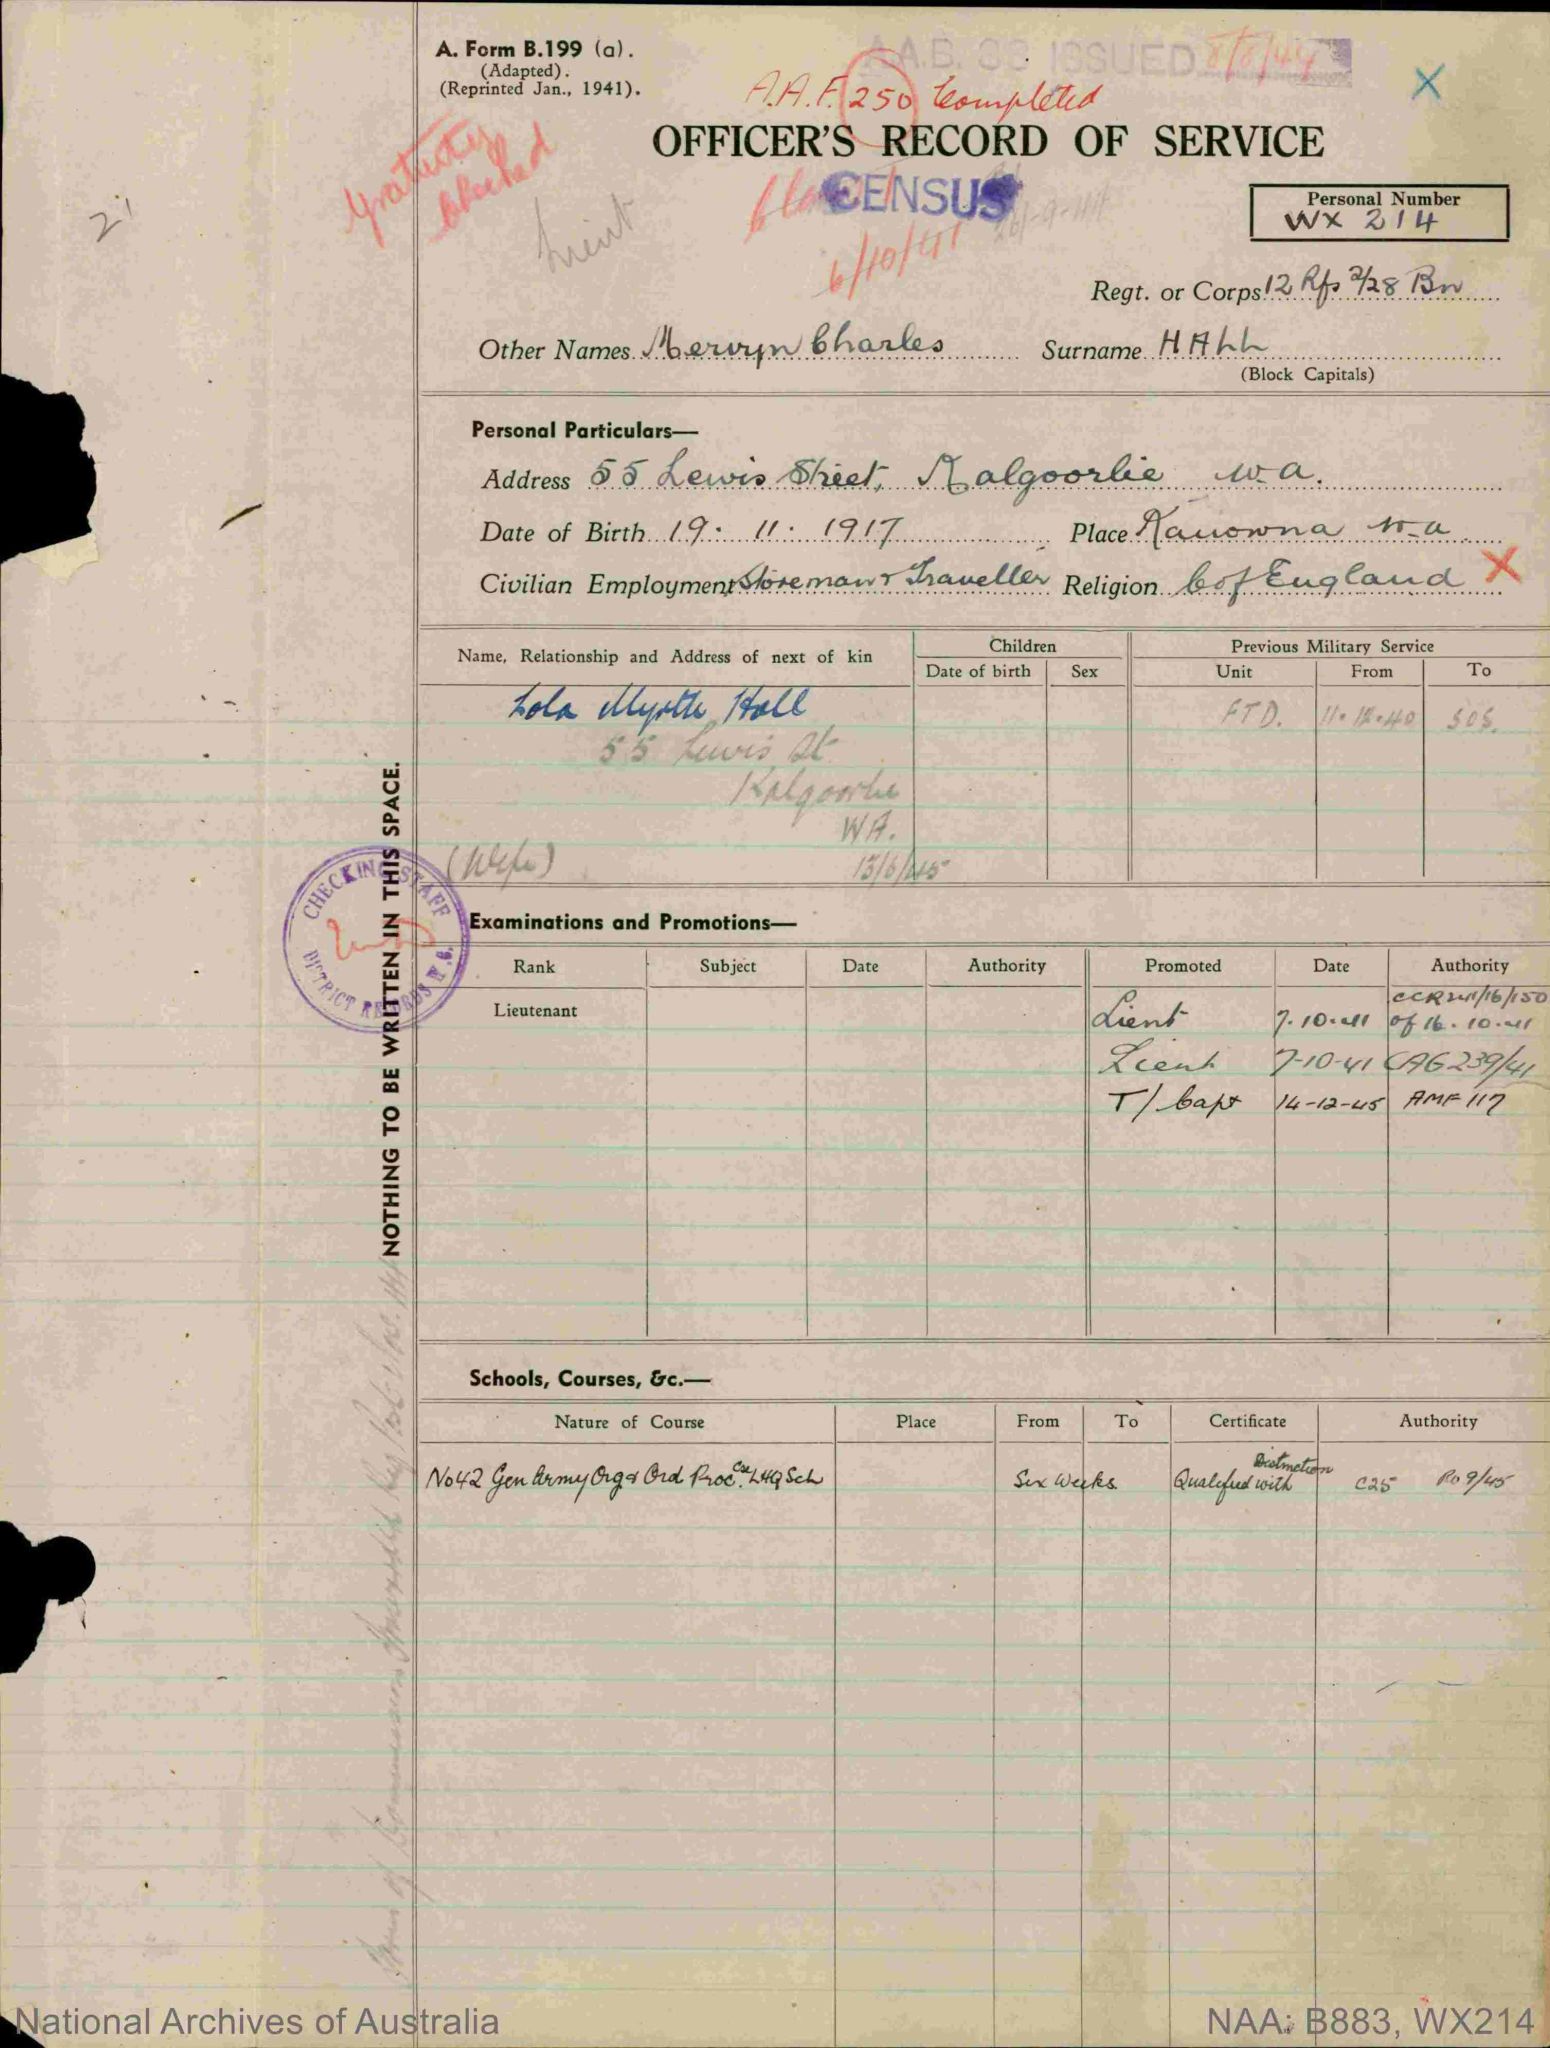 A. Form B.199 (a).
(Adapted).
(Reprinted Jan., 1941).
A.A.B. 83 ISSUED 8/8/44
A.A.F. 250 Completed
OFFICER'S RECORD OF SERVICE
Gratuities
Checked
Lieut
2
CENSUS
6/10/41
Personal Number
WX 214
Regt. or Corps 12 Rfs 2/28 Bn
Other Names Mervyn Charles Surname HALL
(Block Capitals)
Personal Particulars—
Address 55 Lewis Street, Kalgoorlie W.A.
Date of Birth 19. 11. 1917 Place Kanowna W.A
Civilian Employment Storeman & Traveller Religion C of England
Name, Relationship and Address of next of kin Children Previous Military Service
Date of birth Sex Unit From To
Lola Myrtle Hall FTD. 11.12.40 SOS.
55 Lewis St
Kalgoorlie
WA.
(Wife) 13/6/45
NOTHING TO BE WRITTEN IN THIS SPACE.
CHECKING STAFF
DISTRICT RECORDS
Examinations and Promotions—
Rank Subject Date Authority Promoted Date Authority
Lieutenant Lieut 7.10.41 of 16.10.41
Lieut 7-10-41 CAG 239/41
T/ Capt 14-12-45 AMF 117
Schools, Courses, &c.—
Nature of Course Place From To Certificate Authority
No 42 Gen Army Org & Ord Proc. Cse LHQ Sch Six Weeks Qualified with Distinction C25 RO 9/45
National Archives of Australia NAA: B883, WX214